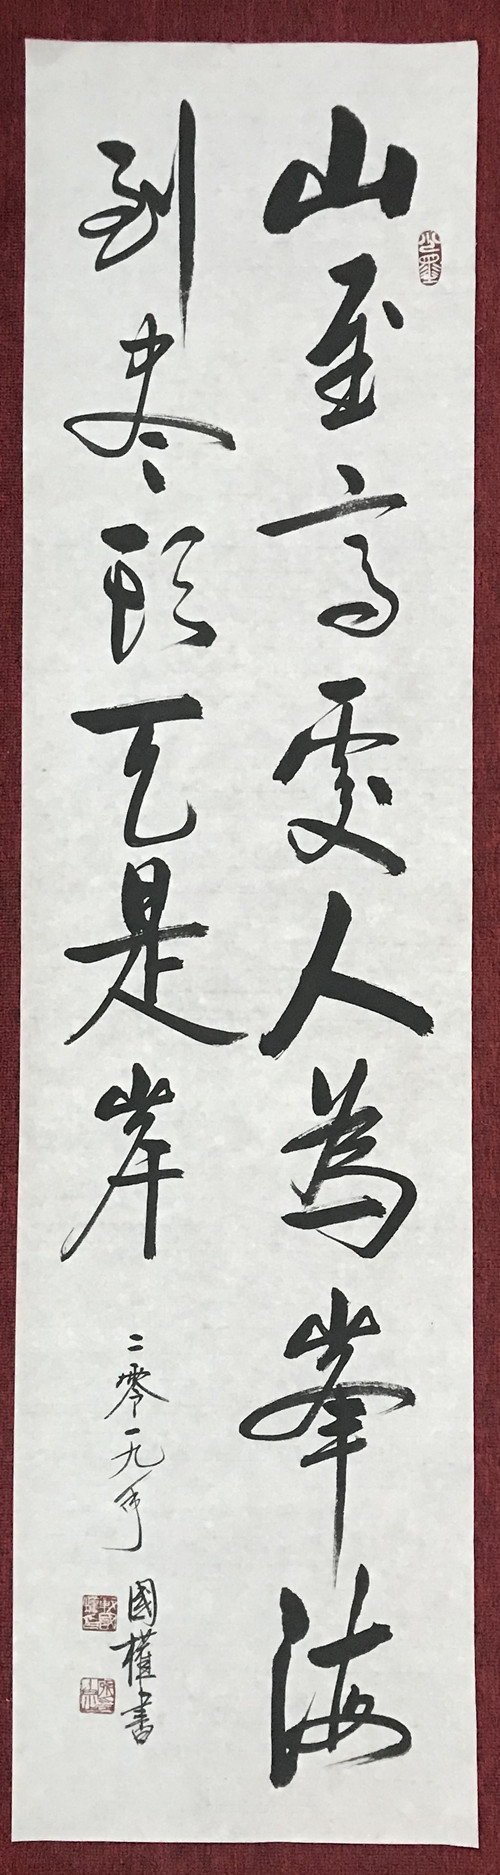 山至高處人為峯海
到尽頭天是岸
二零一九年
國權書